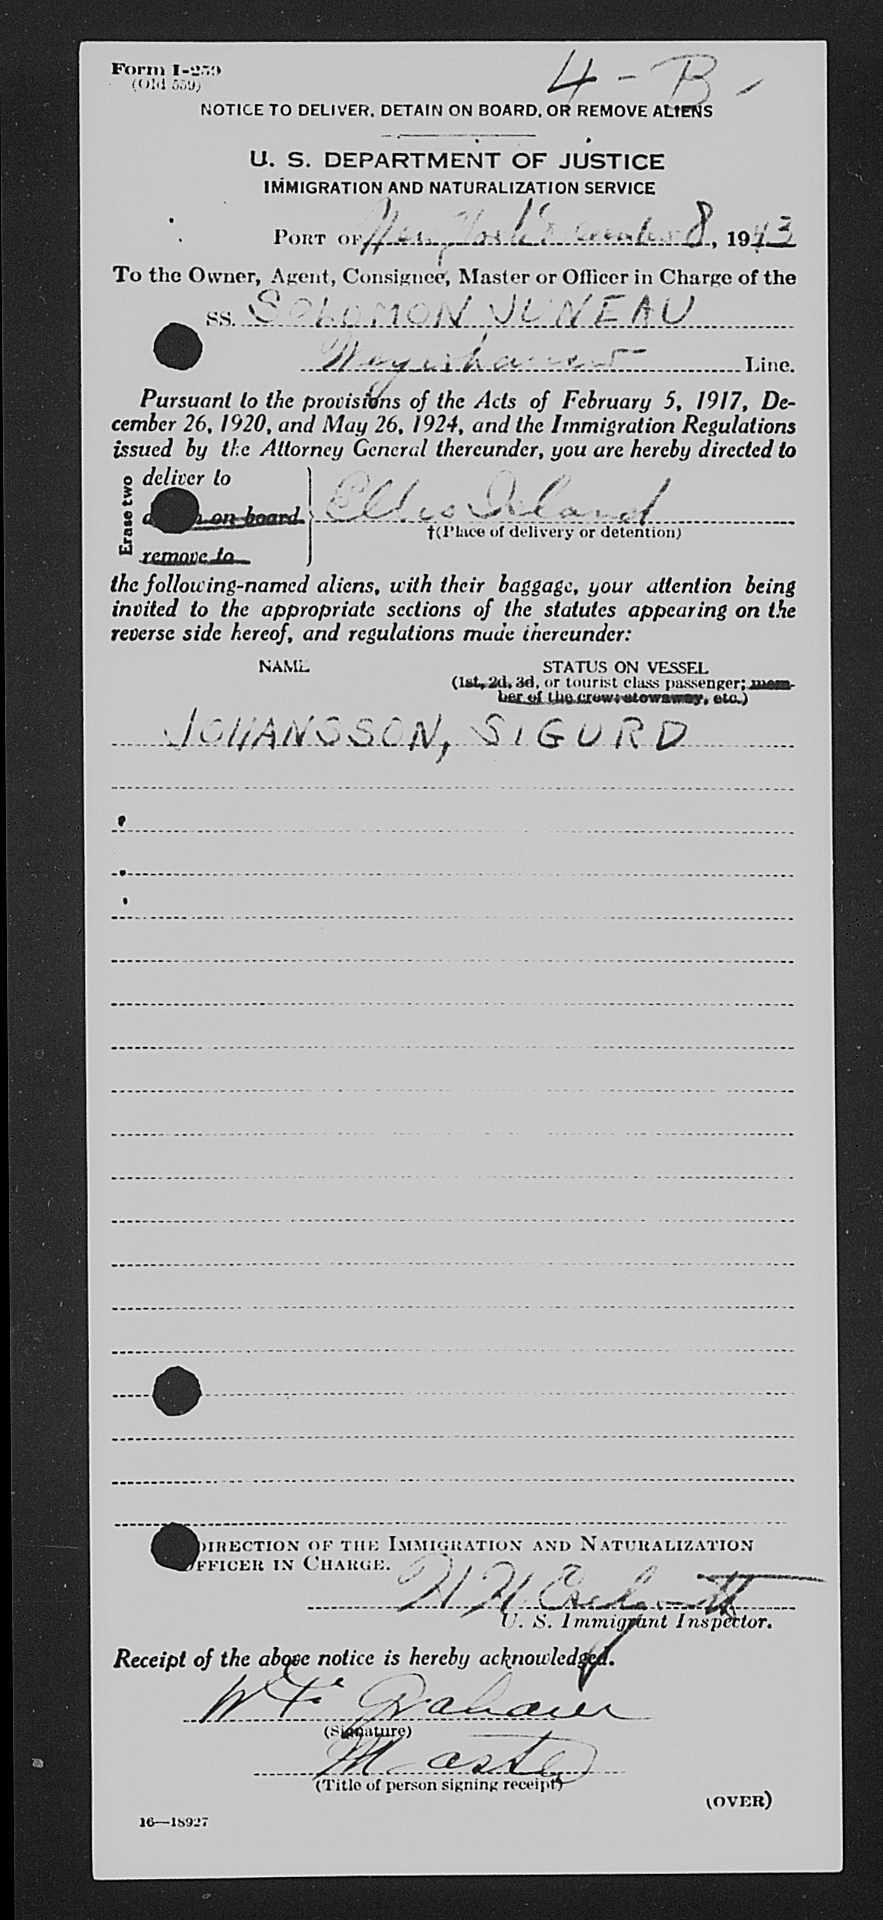 Form I-259
(Old 559)
4 - B -
NOTICE TO DELIVER, DETAIN ON BOARD, OR REMOVE ALIENS
U. S. DEPARTMENT OF JUSTICE
IMMIGRATION AND NATURALIZATION SERVICE
PORT OF New York 8, 1943
To the Owner, Agent, Consignee, Master or Officer in Charge of the
SS. SOLOMON JUNEAU
Line.
Pursuant to the provisions of the Acts of February 5, 1917, De-
cember 26, 1920, and May 26, 1924, and the Immigration Regulations
issued by the Attorney General thereunder, you are hereby directed to
Erase two
deliver to
on board
remove to
Ellis Island
†(Place of delivery or detention)
the following-named aliens, with their baggage, your attention being
invited to the appropriate sections of the statutes appearing on the
reverse side hereof, and regulations made thereunder:
NAME STATUS ON VESSEL
(1st, 2d, 3d, or tourist class passenger; mem-
ber of the crew; stowaway, etc.)
JOHANSSON, SIGURD
DIRECTION OF THE IMMIGRATION AND NATURALIZATION
OFFICER IN CHARGE.
U. S. Immigrant Inspector.
Receipt of the above notice is hereby acknowledged.
(Signature)
Master
(Title of person signing receipt)
(OVER)
16—18927